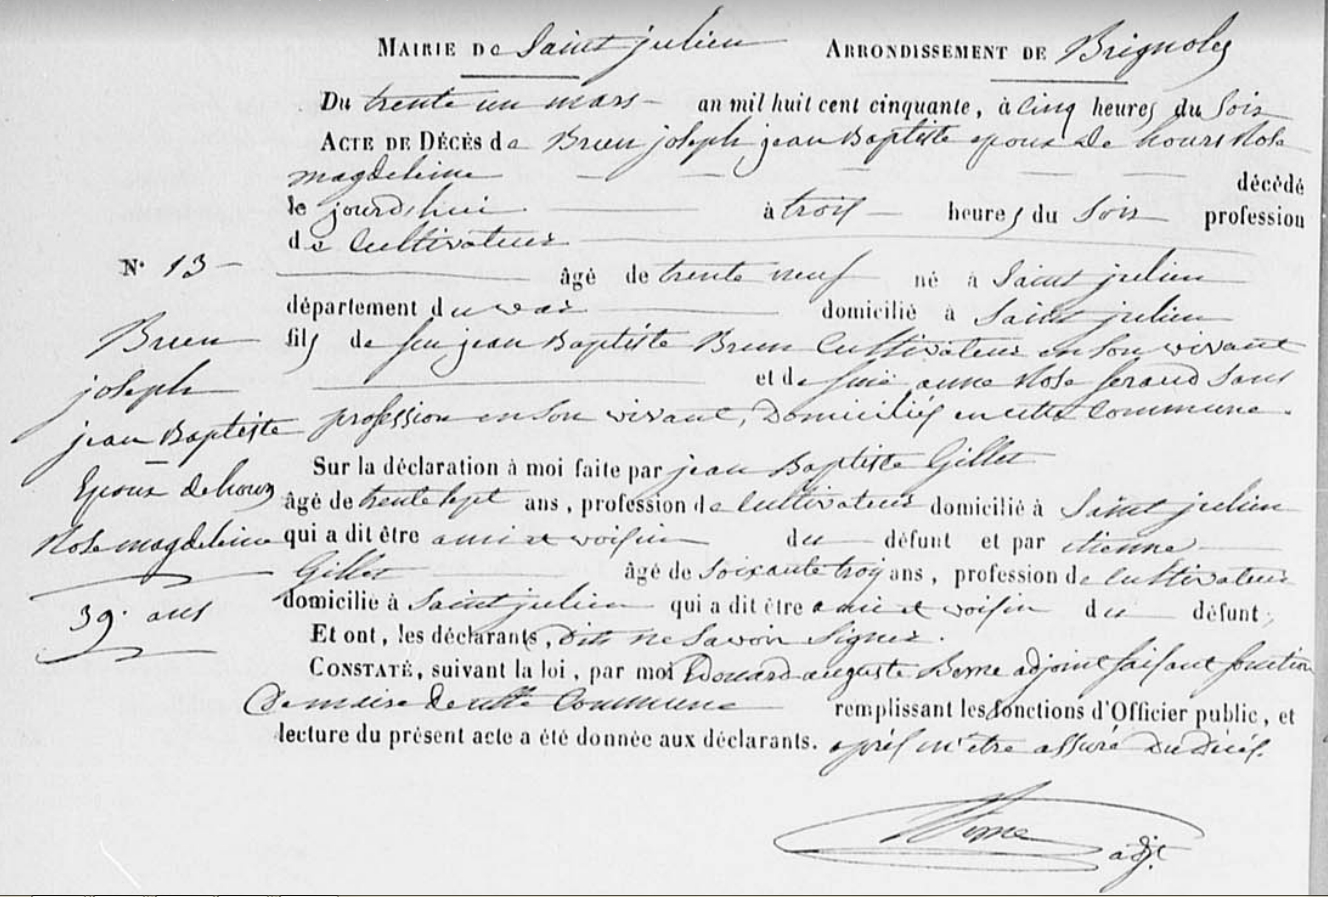 Mairie de Saint julien Arrondissement de Brignoles
Du trente un mars an mil huit cent cinquante, à cinq heures du Soir
Acte de Décès de Brun joseph jean Baptiste epoux de hours Rose
magdeleine décédé
le jourdhui à trois heures du Soir profession
de Cultivateur
N° 13 âgé de trente neuf né à Saint julien
département du var domicilié à Saint julien
fils de feu jean Baptiste Brun Cultivateur en Son vivant
et de feue anne Rose feraud Sans
profession en Son vivant, Domiciliés en cette Commune.
Brun
joseph
jean Baptiste
Epoux de hours
Rose magdeleine
39 ans
Sur la déclaration à moi faite par jean Baptiste Gillet
âgé de trente sept ans, profession de Cultivateur domicilié à Saint julien
qui a dit être ami et voisin du défunt et par etienne
Gillet âgé de Soixante troy ans, profession de Cultivateur
domicilié à Saint julien qui a dit être ami et voisin du défunt;
Et ont, les déclarants, dit ne Savoir Signer.
Constaté, suivant la loi, par moi Edouard auguste Berne adjoint faisant fonction
De maire de cette Commune remplissant les fonctions d'Officier public, et
lecture du présent acte a été donnée aux déclarants. après m'etre assuré Du Décés.
Berne
adj.